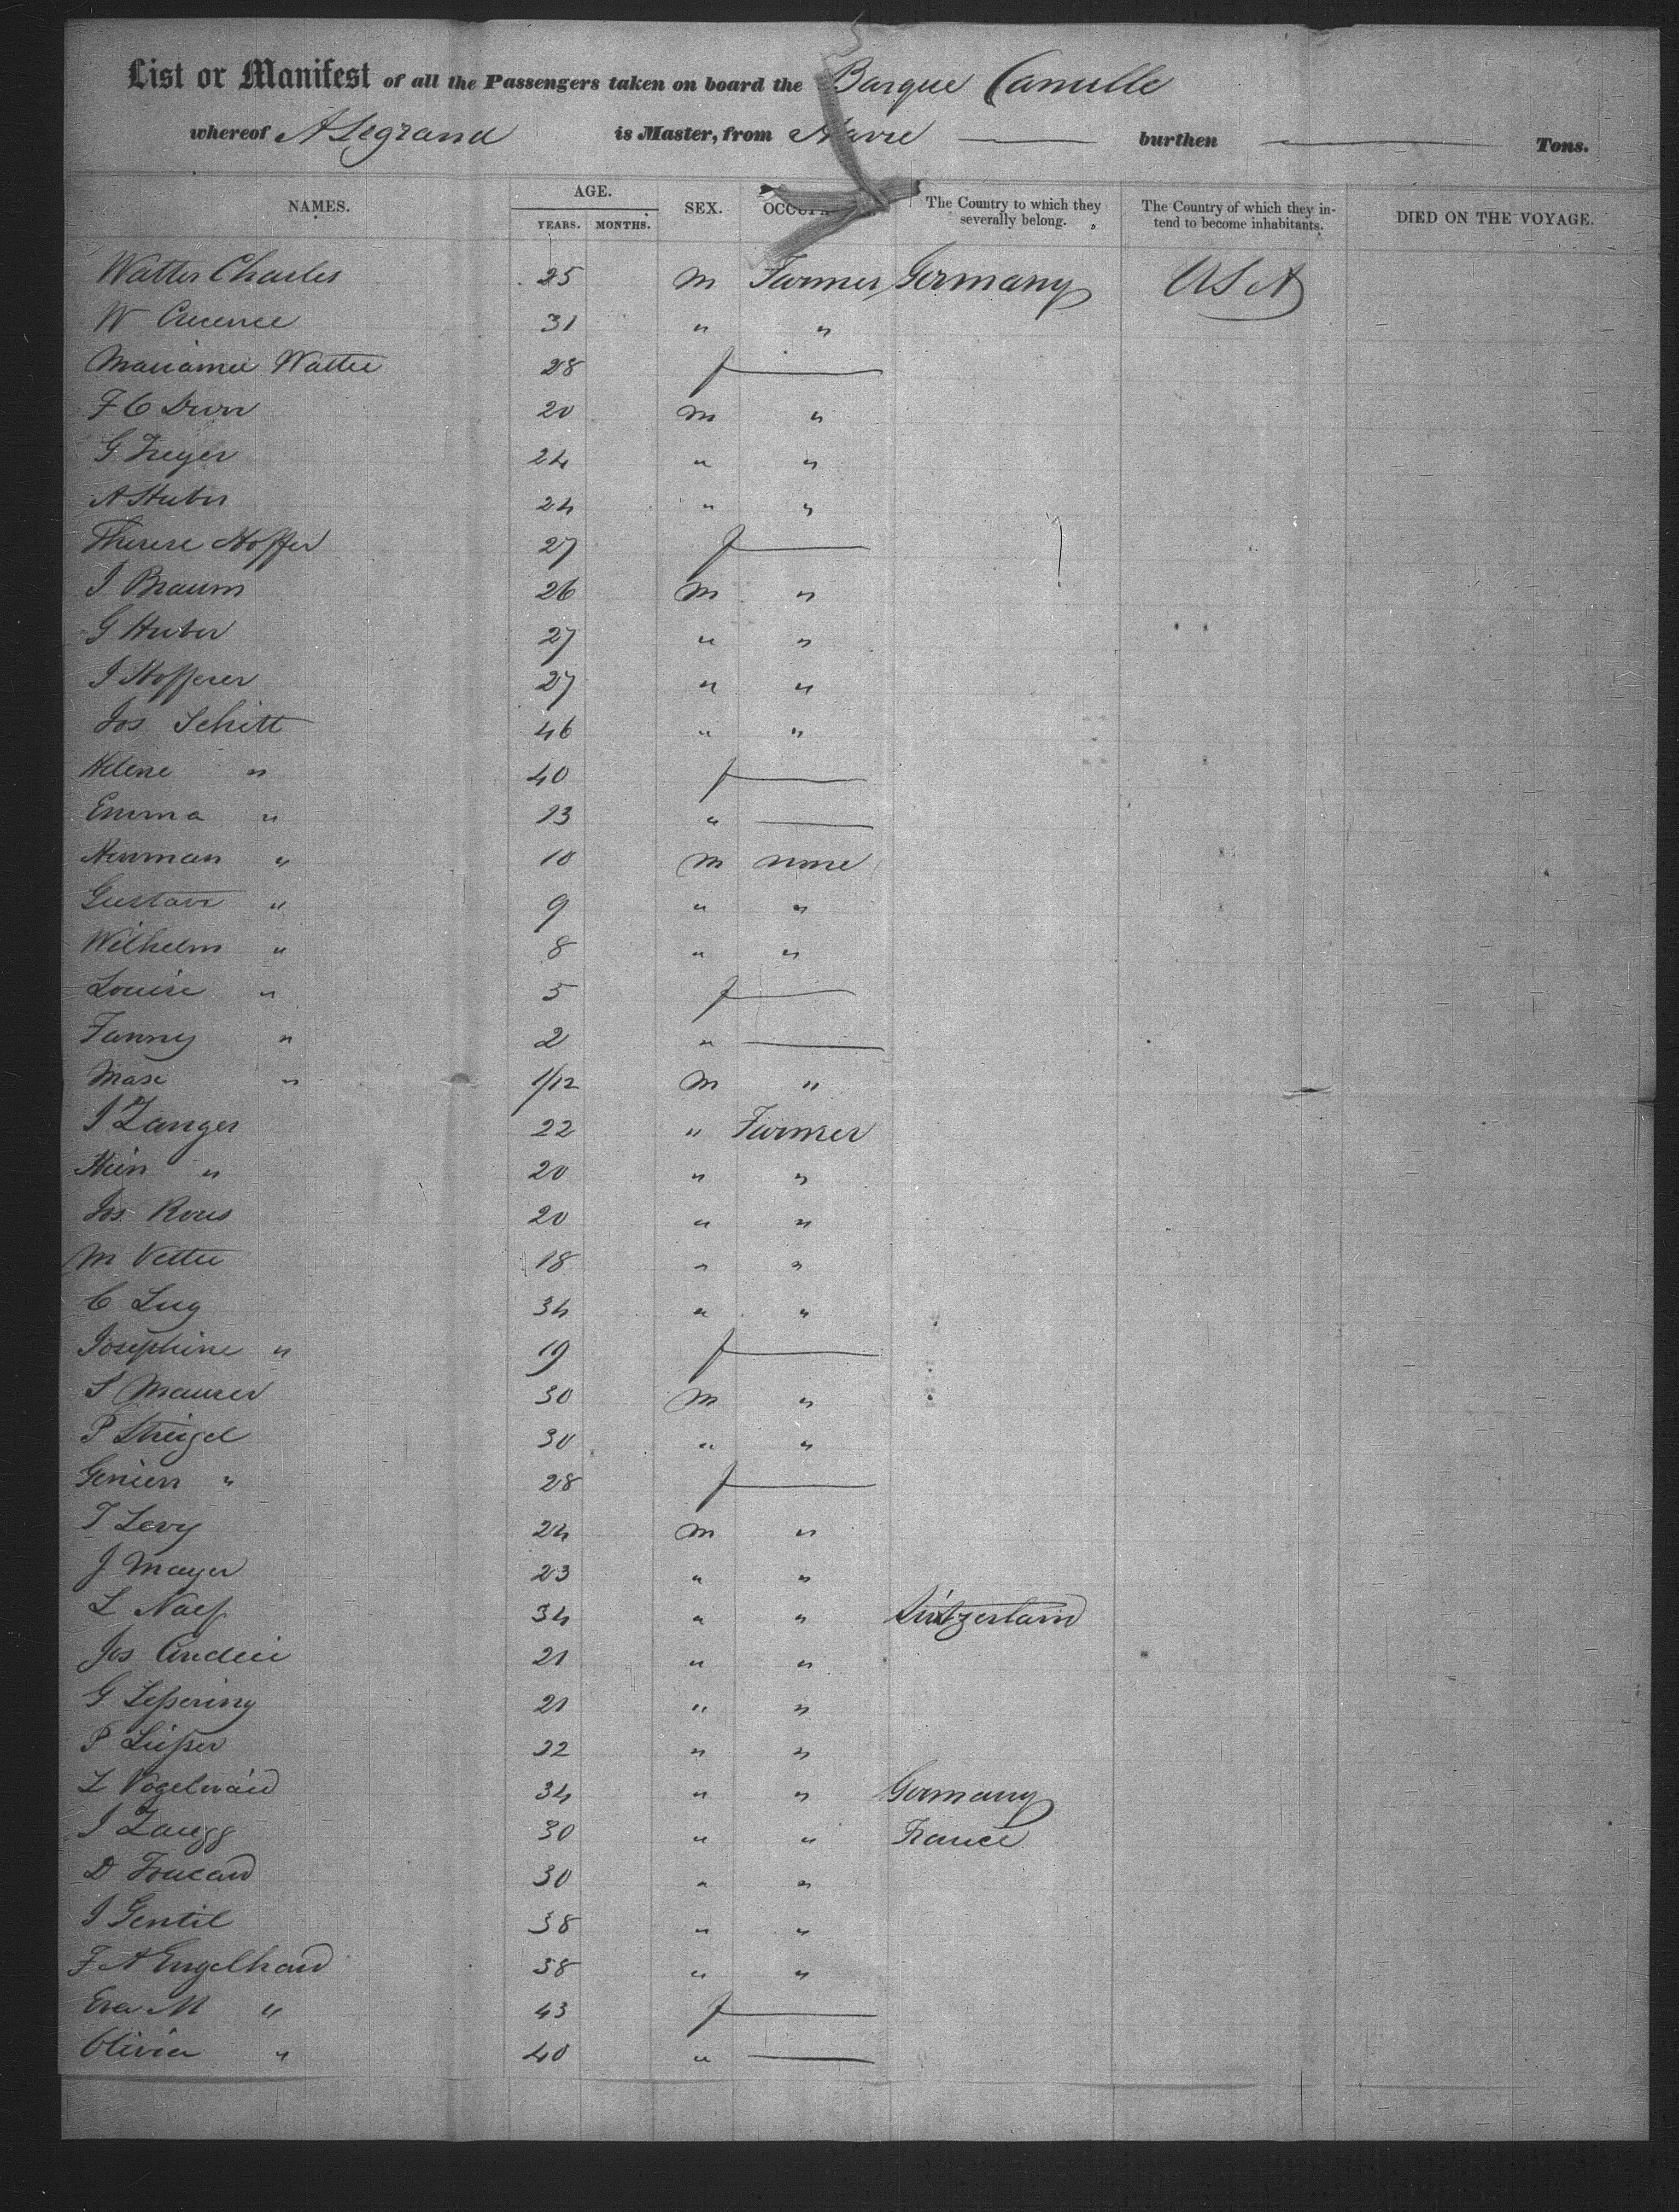 List or Manifest of all the Passengers taken on board the Barque Camille
whereof A Legrand is Master, from Havre — burthen — Tons.
NAMES. AGE. YEARS. MONTHS. SEX. OCCUPA The Country to which they severally belong. The Country of which they intend to become inhabitants. DIED ON THE VOYAGE.
Walter Charles 25 M Farmer Germany USA
W 31 " "
Walter 28 f —
F C 20 M "
G Freyer 24 " "
A Huber 24 " "
Therese Hoffer 27 f —
J Braum 26 M "
G Huber 27 " "
J Hofferer 27 " "
Jos Schitt 46 " "
Helene " 40 f —
Emma " 13 " —
Herrman " 10 M none
Gustave " 9 " "
Wilhelm " 8 " "
Louise " 5 f —
Fanny " 2 " —
Max " 1/12 M "
J Zanger 22 " Farmer
Hein " 20 " "
Jos 20 " "
M Vetter 18 " "
C Lug 34 " "
Josephine " 19 f —
S Maurer 30 M "
P 30 " "
" 28 f —
T Levy 24 M "
J Mayer 23 " "
L Naef 34 " " Switzerland
Jos 21 " "
G Lessering 21 " "
P 22 " "
L Vogelwaid 34 " " Germany
J Zaugg 30 " " France
D Foucard 30 " "
J Gentil 38 " "
F A Engelhard 38 " "
Eva M " 43 f —
Olivia " 40 " —